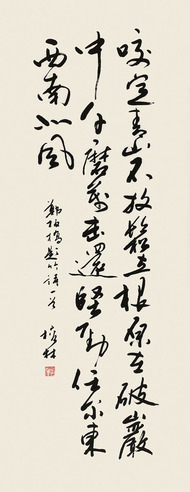 咬定青山不放鬆立根原在破巖
中千磨萬擊還堅勁任尔東
西南北風
鄭板橋題竹詩一首